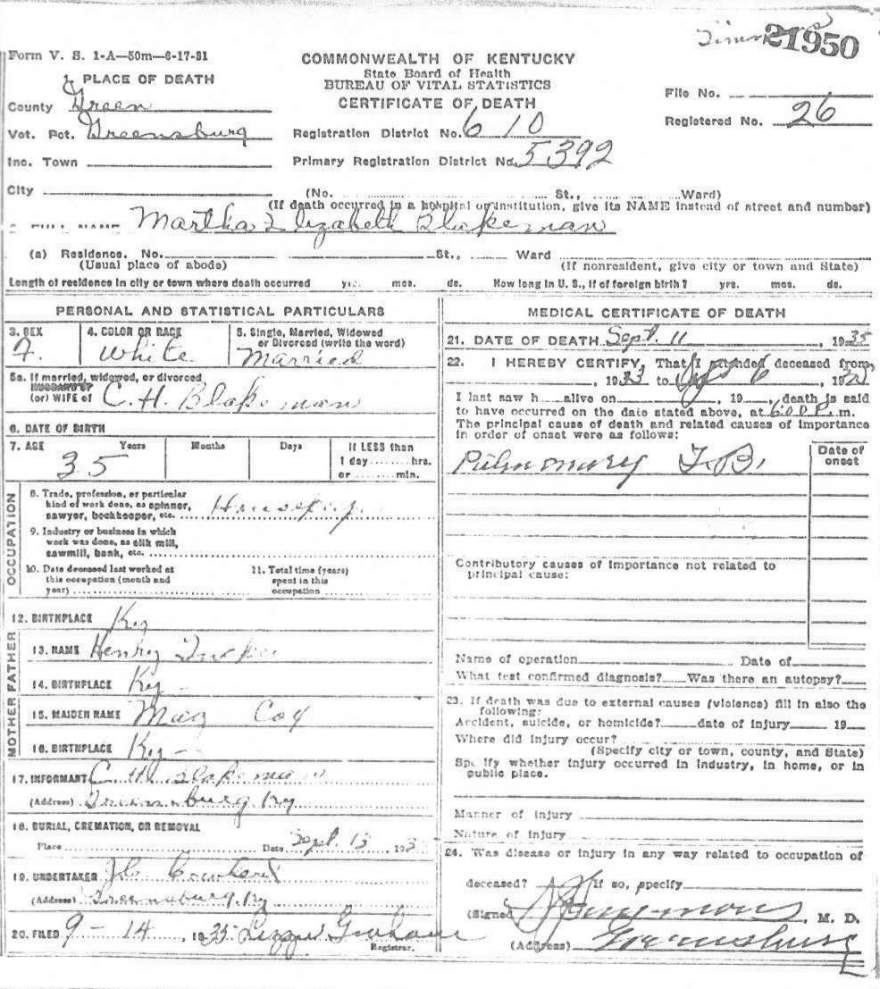 21950
Form V. S. 1-A—50m—6-17-31
COMMONWEALTH OF KENTUCKY
State Board of Health
BUREAU OF VITAL STATISTICS
CERTIFICATE OF DEATH
File No.
Registered No. 26
1 PLACE OF DEATH
County Green
Vot. Pct. Greensburg
Registration District No. 610
Inc. Town
Primary Registration District No. 5392
City (No. St., Ward)
(If death occurred in a hospital or institution, give its NAME instead of street and number)
FULL NAME Martha Elizabeth Blakeman
(a) Residence. No. St., Ward
(Usual place of abode) (If nonresident, give city or town and State)
Length of residence in city or town where death occurred yrs. mos. ds. How long in U. S., if of foreign birth? yrs. mos. ds.
PERSONAL AND STATISTICAL PARTICULARS
3. SEX 4. COLOR OR RACE 5. Single, Married, Widowed
or Divorced (write the word)
F. White Married
5a. If married, widowed, or divorced
HUSBAND of
(or) WIFE of C. H. Blakeman
6. DATE OF BIRTH
7. AGE Years Months Days If LESS than
1 day hrs.
or min.
35
OCCUPATION
8. Trade, profession, or particular
kind of work done, as spinner,
sawyer, bookkeeper, etc.
9. Industry or business in which
work was done, as silk mill,
sawmill, bank, etc.
10. Date deceased last worked at
this occupation (month and
year)
11. Total time (years)
spent in this
occupation
12. BIRTHPLACE Ky
FATHER
13. NAME Henry
14. BIRTHPLACE Ky
MOTHER
15. MAIDEN NAME Mag Cox
16. BIRTHPLACE Ky
17. INFORMANT C. H. Blakeman
(Address) Greensburg Ky
18. BURIAL, CREMATION, OR REMOVAL
Place Date Sept. 13 193
19. UNDERTAKER
(Address) Greensburg, Ky
20. FILED 9-14, 1935 Lizzie Graham
Registrar.
MEDICAL CERTIFICATE OF DEATH
21. DATE OF DEATH Sept. 11, 1935
22. I HEREBY CERTIFY, That I attended deceased from
, 1933 to , 19
I last saw h alive on , 19 , death is said
to have occurred on the date stated above, at 6:00 P. m.
The principal cause of death and related causes of importance
in order of onset were as follows:
Date of
onset
Pulmonary T.B.
Contributory causes of importance not related to
principal cause:
Name of operation Date of
What test confirmed diagnosis? Was there an autopsy?
23. If death was due to external causes (violence) fill in also the
following:
Accident, suicide, or homicide? date of injury 19
Where did injury occur?
(Specify city or town, county, and State)
Specify whether injury occurred in industry, in home, or in
public place.
Manner of injury
Nature of injury
24. Was disease or injury in any way related to occupation of
deceased? If so, specify
(Signed) M. D.
(Address) Greensburg